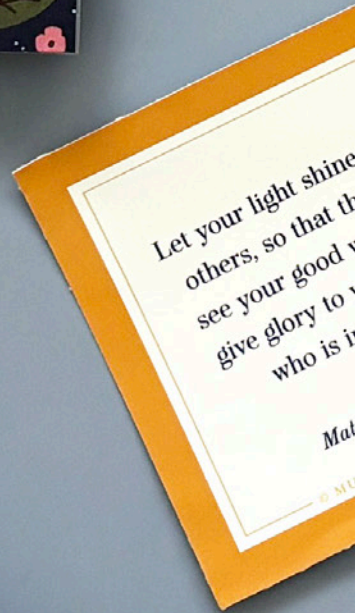 Let your light shine
others, so that th
see your good w
give glory to y
who is in
Mat
© MU